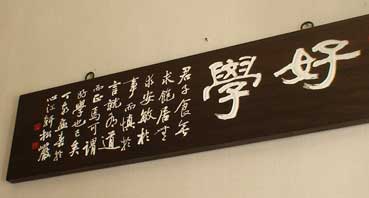 好學
君子食无
求飽居无
求安敏於
事而慎於
言就有道
而正焉可謂
好學也已矣
丁亥孟春於
江軒松巖